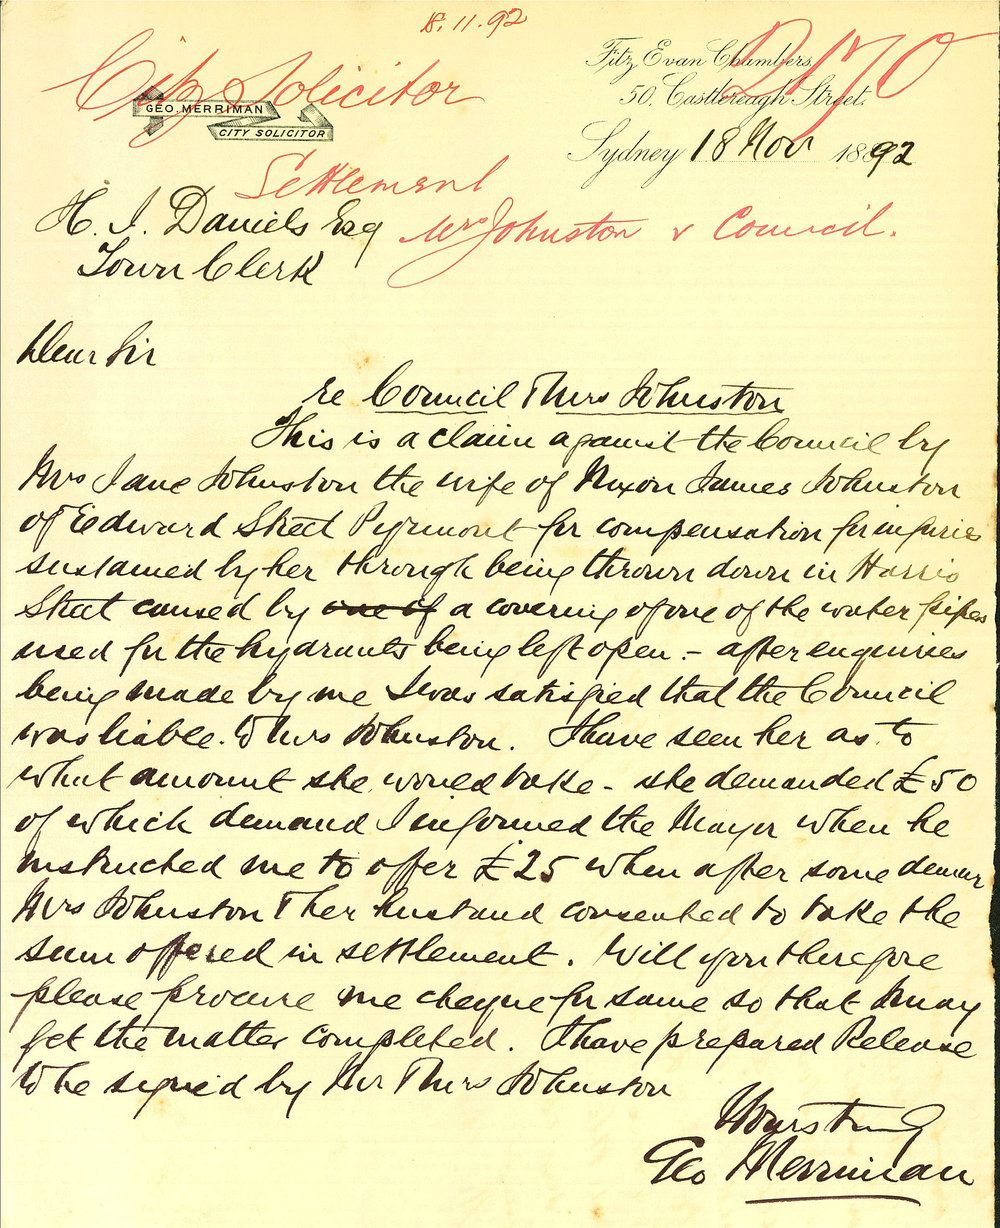 18.11.92
City Solicitor
2170
Fitz Evan Chambers,
50, Castlereagh Street.
GEO. MERRIMAN
CITY SOLICITOR
Sydney 18 Nov 1892
Settlement
Mrs Johnston v Council.
H. J. Daniels Esq
Town Clerk
Dear Sir
re Council & Mrs Johnston
This is a claim against the Council by
Mrs Jane Johnston the wife of Nixon James Johnston
of Edward Street Pyrmont for compensation for injuries
sustained by her through being thrown down in Harris
Street caused by one of a covering of one of the water pipes
used for the hydrants being left open. – after enquiries
being made by me I was satisfied that the Council
was liable to Mrs Johnston. I have seen her as to
what amount she would take – she demanded £50
of which demand I informed the Mayor when he
instructed me to offer £25 when after some demur
Mrs Johnston & her husband consented to take the
sum offered in settlement. Will you therefore
please procure me cheque for same so that I may
get the matter completed. I have prepared Release
to be signed by Mr & Mrs Johnston
Yours truly
Geo Merriman